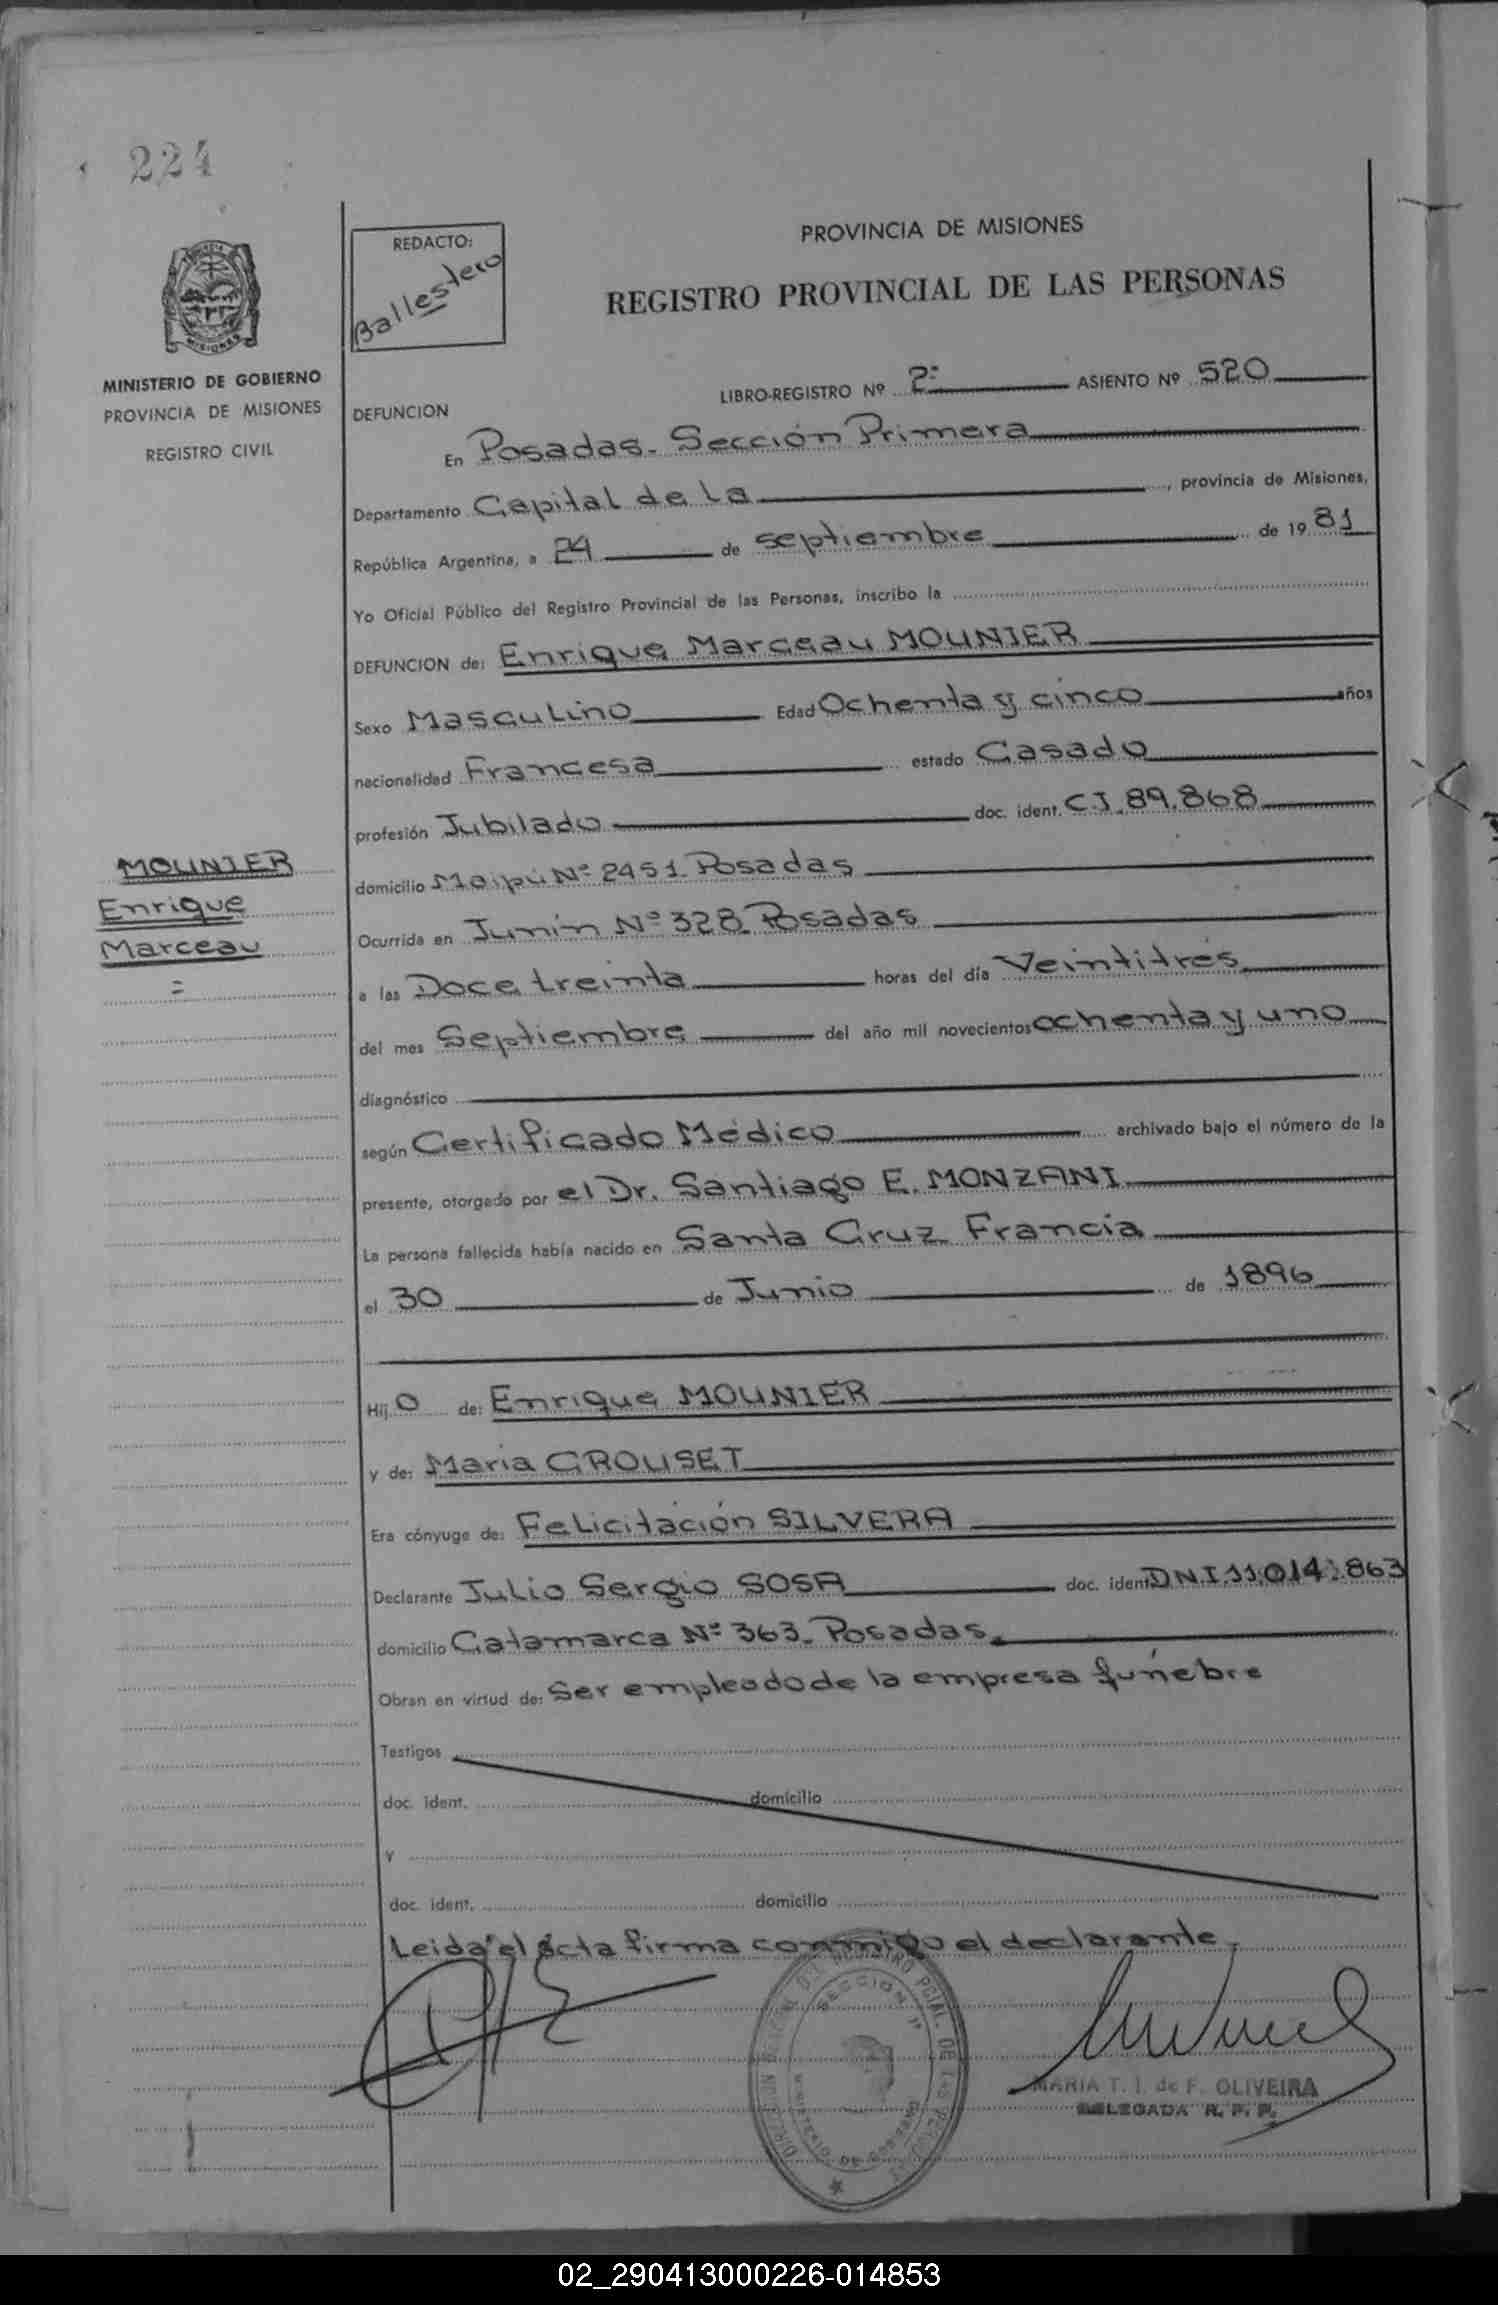 224
REDACTO:
Ballestero
PROVINCIA DE MISIONES
REGISTRO PROVINCIAL DE LAS PERSONAS
MISIONES
MINISTERIO DE GOBIERNO
PROVINCIA DE MISIONES
REGISTRO CIVIL
LIBRO-REGISTRO Nº 2º ASIENTO Nº 520
DEFUNCION
En Posadas. Sección Primera
Departamento Capital de La, provincia de Misiones,
República Argentina, a 24 de septiembre de 1981
Yo Oficial Público del Registro Provincial de las Personas, inscribo la
DEFUNCION de: Enrique Marceau MOUNIER
Sexo Masculino Edad Ochenta y cinco años
nacionalidad Francesa estado Casado
profesión Jubilado doc. ident. C.I. 89.868
MOUNIER
Enrique
Marceau
=
domicilio Maipú Nº 2451. Posadas
Ocurrida en Junín Nº 328 Posadas
a las Doce treinta horas del día Veintitrés
del mes Septiembre del año mil novecientos ochenta y uno
diagnóstico
según Certificado Médico archivado bajo el número de la
presente, otorgado por el Dr. Santiago E. MONZANI
La persona fallecida había nacido en Santa Cruz Francia
el 30 de Junio de 1896
Hijo de: Enrique MOUNIER
y de: Maria GROUSET
Era cónyuge de: Felicitación SILVERA
Declarante Julio Sergio SOSA doc. ident. D.N.I. 11.014.863
domicilio Catamarca Nº 363. Posadas.
Obran en virtud de: Ser empleado de la empresa fúnebre
Testigos
doc. ident. domicilio
y
doc. ident. domicilio
Leida el acta firma conmigo el declarante.
SECCION 1ª
MINISTERIO DE GOBIERNO
MARIA T. I. de F. OLIVEIRA
DELEGADA R. P. P.
02_290413000226-014853